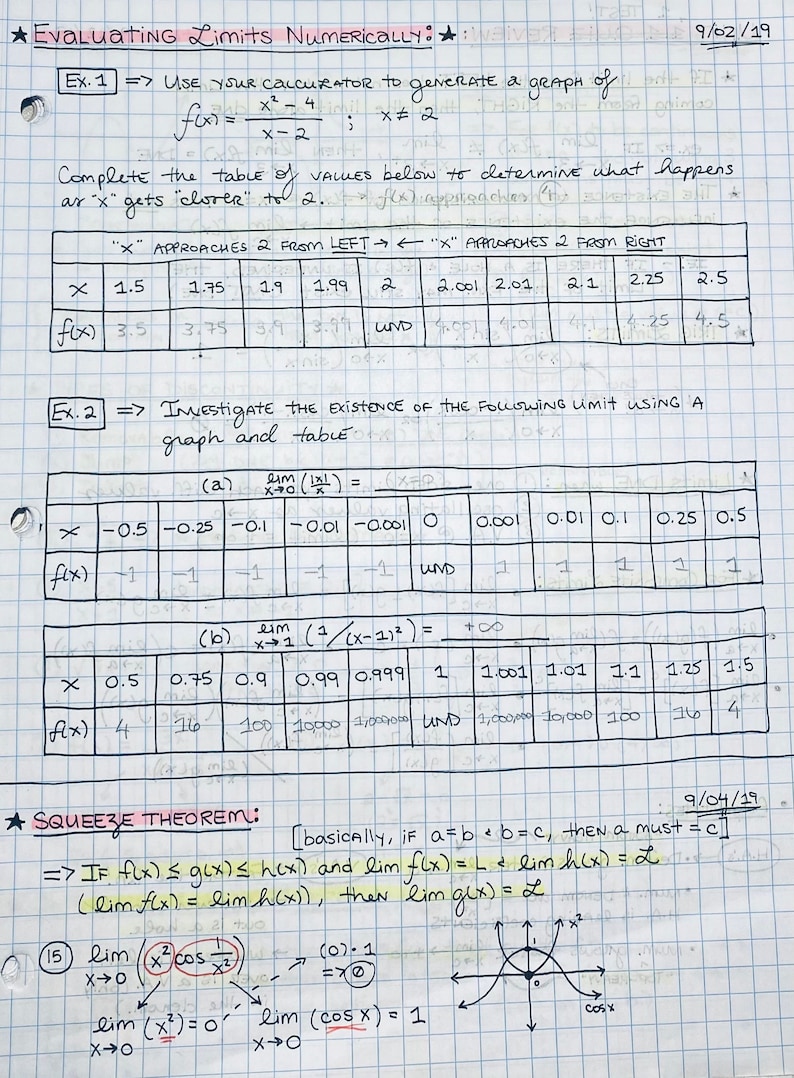 ★ Evaluating Limits Numerically: ★ : 9/02/19
Ex. 1 => Use your calculator to generate a graph of
f(x) = x² - 4 / x - 2 ; x ≠ 2
Complete the table of values below to determine what happens
as "x" gets "closer" to 2. → f(x) approaches (4)
"x" approaches 2 from left → ← "x" approaches 2 from right
x 1.5 1.75 1.9 1.99 2 2.001 2.01 2.1 2.25 2.5
f(x) 3.5 3.75 3.9 3.99 UND 4.001 4.01 4.1 4.25 4.5
Ex. 2 => Investigate the existence of the following limit using a
graph and table
(a) lim x→0 (|x|/x) =
x -0.5 -0.25 -0.1 -0.01 -0.001 0 0.001 0.01 0.1 0.25 0.5
f(x) -1 -1 -1 -1 -1 UND 1 1 1 1 1
(b) lim x→1 (1/(x-1)²) = +∞
x 0.5 0.75 0.9 0.99 0.999 1 1.001 1.01 1.1 1.25 1.5
f(x) 4 16 100 10,000 1,000,000 UND 1,000,000 10,000 100 16 4
9/04/19
★ Squeeze Theorem:
[basically, if a=b & b=c, then a must = c]
=> If f(x) ≤ g(x) ≤ h(x) and lim f(x) = L & lim h(x) = L
(lim f(x) = lim h(x)), then lim g(x) = L
15 lim x→0 (x² cos 1/x²) (0)·1
=> 0
lim x→0 (x²) = 0 lim x→0 (cos x) = 1
x²
1
0
cos x